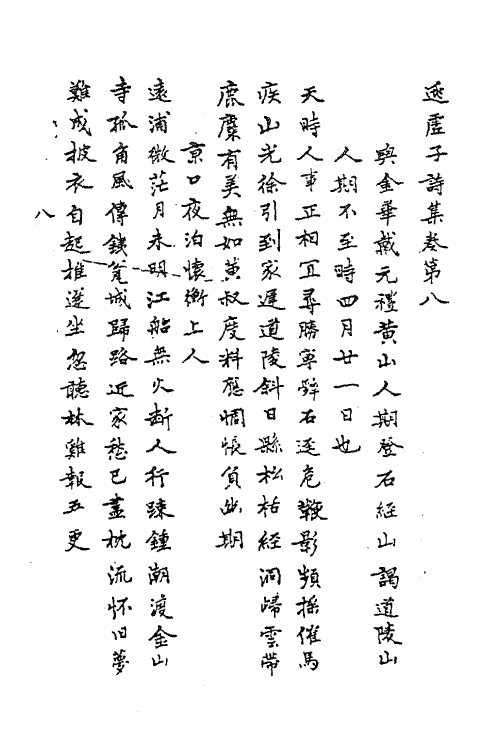 逃虛子詩集卷第八
與金華戴元禮黃山人期登石經山謁道陵山
人期不至時四月廿一日也
天時人事正相宜尋勝寧辭石逕危鞭影頻搖催馬
疾山光徐引到家遲道陵斜日縣松栝經洞歸雲帶
鹿麋有美無如黃叔度料應惆悵負幽期
京口夜泊懷衡上人
遠浦微茫月未明江船無火斷人行踈鍾潮渡金山
寺孤角風傳鐵瓮城歸路近家愁已盡枕流怀旧夢
難成披衣自起推篷坐忽聽林雞報五更
八